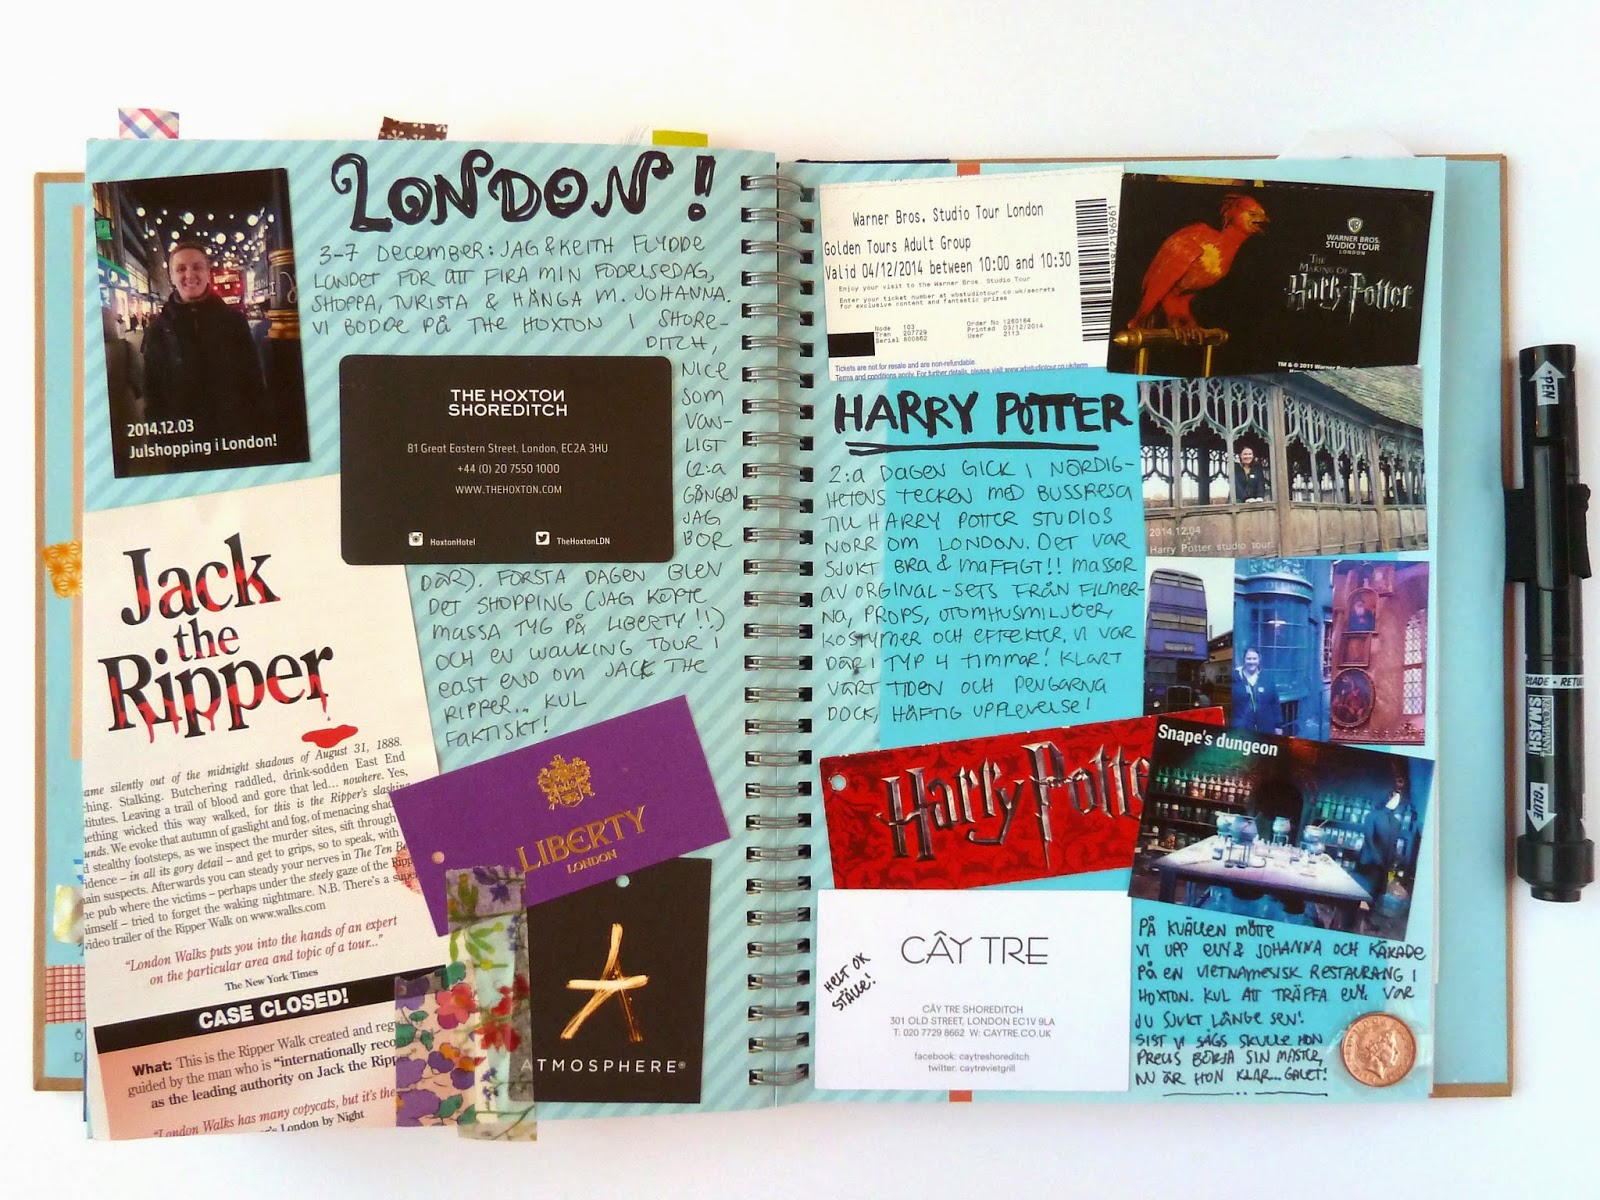 LONDON!
3-7 DECEMBER: JAG & KEITH FLYDDE
LANDET FÖR ATT FIRA MIN FÖDELSEDAG,
SHOPPA, TURISTA & HÄNGA M. JOHANNA.
VI BODDE PÅ THE HOXTON I SHORE-
DITCH,
NICE
SOM
VAN-
LIGT
(2:A
GÅNGEN
JAG
BOR
DÄR). FÖRSTA DAGEN BLEV
DET SHOPPING (JAG KÖPTE
MASSA TYG PÅ LIBERTY!!)
OCH EN WALKING TOUR I
EAST END OM JACK THE
RIPPER... KUL
FAKTISKT!
2014.12.03
Julshopping i London!
THE HOXTON
SHOREDITCH
81 Great Eastern Street, London, EC2A 3HU
+44 (0) 20 7550 1000
WWW.THEHOXTON.COM
HoxtonHotel
TheHoxtonLDN
Jack
the
Ripper
ame silently out of the midnight shadows of August 31, 1888.
ching. Stalking. Butchering raddled, drink-sodden East End
titutes. Leaving a trail of blood and gore that led... nowhere. Yes,
ething wicked this way walked, for this is the Ripper's slashing
unds. We evoke that autumn of gaslight and fog, of menacing shad
d stealthy footsteps, as we inspect the murder sites, sift through
idence – in all its gory detail – and get to grips, so to speak, with
ain suspects. Afterwards you can steady your nerves in The Ten Be
he pub where the victims – perhaps under the steely gaze of the Ripp
himself – tried to forget the waking nightmare. N.B. There's a supe
video trailer of the Ripper Walk on www.walks.com
"London Walks puts you into the hands of an expert
on the particular area and topic of a tour..."
The New York Times
CASE CLOSED!
What: This is the Ripper Walk created and regu
guided by the man who is "internationally reco
as the leading authority on Jack the Ripp
"London Walks has many copycats, but it's the
London by Night
LIBERTY
LONDON
ATMOSPHERE®
Warner Bros. Studio Tour London
Golden Tours Adult Group
Valid 04/12/2014 between 10:00 and 10:30
Enjoy your visit to the Warner Bros. Studio Tour
Enter your ticket number at wbstudiotour.co.uk/secrets
for exclusive content and fantastic prizes
Node 103 Order No 1260164
Tran 207729 Printed 03/12/2014
Serial 800862 User 2113
Tickets are not for resale and are non-refundable.
Terms and conditions apply. For further details, please visit www.wbstudiotour.co.uk/term
WARNER BROS.
STUDIO TOUR
LONDON
THE
MAKING OF
Harry Potter
HARRY POTTER
2:A DAGEN GICK I NÖRDIG-
HETENS TECKEN MED BUSSRESA
TILL HARRY POTTER STUDIOS
NORR OM LONDON. DET VAR
SJUKT BRA & MAFFIGT!! MASSOR
AV ORGINAL-SETS FRÅN FILMER-
NA, PROPS, UTOMHUSMILJÖER,
KOSTYMER OCH EFFEKTER. VI VAR
DÄR I TYP 4 TIMMAR! KLART
VÄRT TIDEN OCH PENGARNA
DOCK, HÄFTIG UPPLEVELSE!
2014.12.04
Harry Potter studio tour.
Harry Potte
Snape's dungeon
HELT OK
STÄLLE!
CÂY TRE
CÂY TRE SHOREDITCH
301 OLD STREET, LONDON EC1V 9LA
T: 020 7729 8662 W: CAYTRE.CO.UK
facebook: caytreshoreditch
twitter: caytrevietgrill
PÅ KVÄLLEN MÖTTE
VI UPP EVY & JOHANNA OCH KÄKADE
PÅ EN VIETNAMESISK RESTAURANG I
HOXTON. KUL ATT TRÄFFA EVY. VAR
JU SJUKT LÄNGE SEN!
SIST VI SÅGS SKULLE HON
PRECIS BÖRJA SIN MASTER,
NU ÄR HON KLAR... GALET!
PEN
SMASH
GLUE